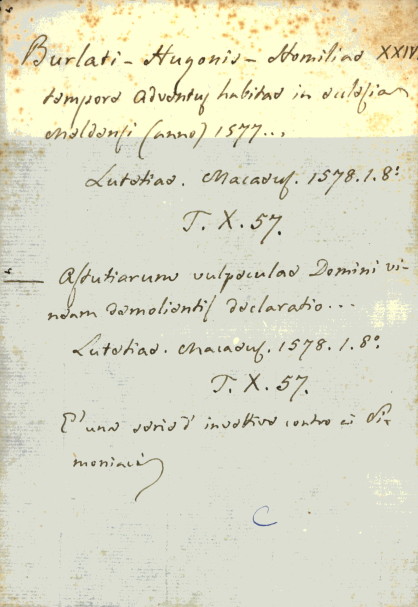 Burlati - Hugonis - Homiliae XXIV.
tempore Adventus habitae in ecclesia
Meldensi (anno) 1577...
Lutetiae. Macaeus. 1578. 1. 8º
T. X. 57.
— Astutiarum vulpeculae Domini vi-
neam demolientis declaratio...
Lutetiae. Macaeus. 1578. 1. 8º
T. X. 57.
E' una serie d' invettive contro i Si-
moniaci
C